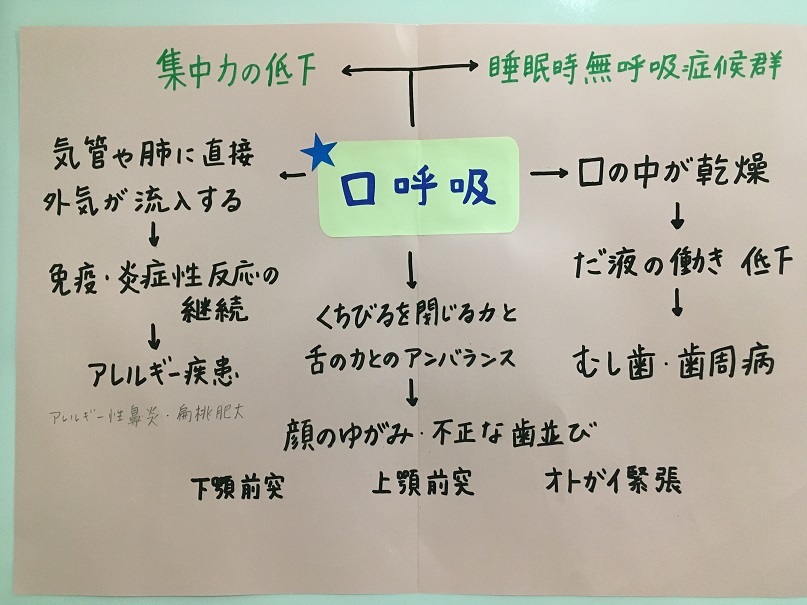 集中力の低下
睡眠時無呼吸症候群
口呼吸
気管や肺に直接
外気が流入する
免疫・炎症性反応の
継続
アレルギー疾患
アレルギー性鼻炎・扁桃肥大
くちびるを閉じる力と
舌の力とのアンバランス
顔のゆがみ・不正な歯並び
下顎前突
上顎前突
オトガイ緊張
口の中が乾燥
だ液の働き 低下
むし歯・歯周病